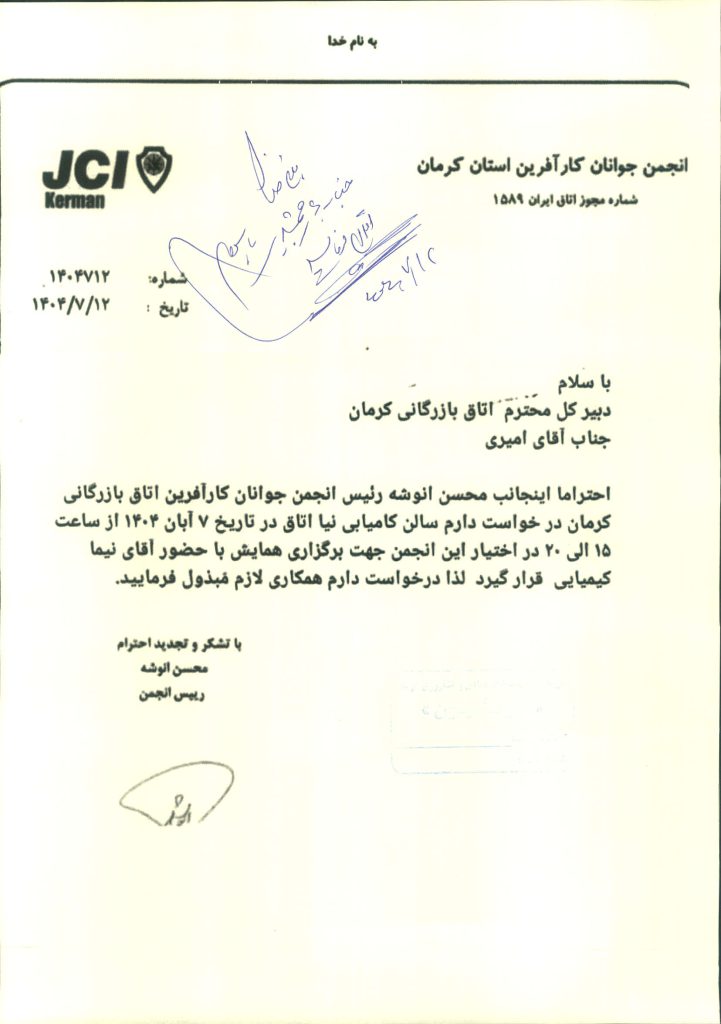 به نام خدا
JCI
Kerman
انجمن جوانان کارآفرین استان کرمان
شماره مجوز اتاق ایران ۱۵۸۹
شماره: ۱۴۰۴۷۱۲
تاریخ : ۱۴۰۴/۷/۱۲
با سلام
دبیر کل محترم اتاق بازرگانی کرمان
جناب آقای امیری
احتراما اینجانب محسن انوشه رئیس انجمن جوانان کارآفرین اتاق بازرگانی
کرمان در خواست دارم سالن کامیابی نیا اتاق در تاریخ ۷ آبان ۱۴۰۴ از ساعت
۱۵ الی ۲۰ در اختیار این انجمن جهت برگزاری همایش با حضور آقای نیما
کیمیایی قرار گیرد لذا درخواست دارم همکاری لازم مَبذول فرمایید.
با تشکر و تجدید احترام
محسن انوشه
رییس انجمن